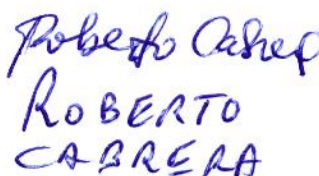 Roberto Cabrera
ROBERTO
CABRERA